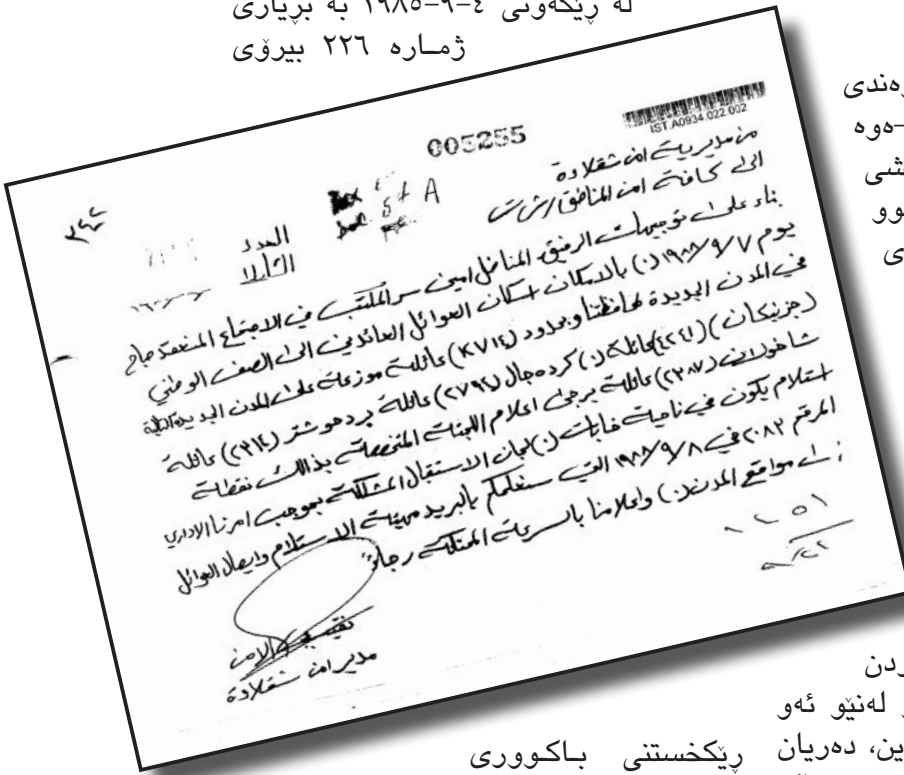 لە ڕێکەوتی ٤-٩-١٩٨٥ بە بڕیاری
ژمـارە ٢٢٦ بیرۆی
ەندی
-ەوە
شی
وو
ی
IST.A0934.022.002
005255
من مديرية امن شقلاوة
الى كافة امن المناطق
العدد
بناء على توجيهات الرفيق المناضل امين سر المكتب في الاجتماع المنعقد صباح
يوم ٧/٩/١٩٨٨ (٠) بالامكان اسكان العوائل العائدين الى الصف الوطني
في المدن الجديدة لمحافظتنا وبحدود عائلة موزعة على المدن الجديدة التالية
(جزنيكان) عائلة (٠) كرده جال (٢٧٩٢) عائلة برد هوشتر (٢٣١٤) عائلة
(٢٣٨٧) عائلة يرجى اعلام اللجنة المختصة بذالك نقطة
استلام يكون في ناحية خابات (٠) لجان الاستقبال المشكلة بموجب امرنا الاداري
المرقم ٢٠٨٣ في ٨/٩/١٩٨٨ التي ستعلمكم بالبريد مهيئة الاستلام وايصال العوائل
مواقع المدن (٠) واعلامنا بالسرعة الممكنة رجاءً
الامن
مدير امن شقلاوة
ردن
لەنێو ئەو
ین، دەریان
ڕێکخستنی بـاکـووری